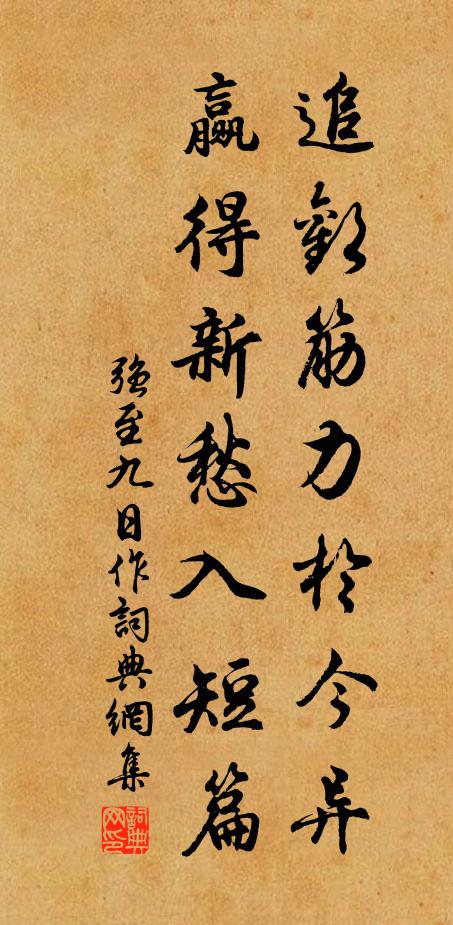 追歡筋力於今异
贏得新愁入短篇
強至九日作詞典網集
詞典網印